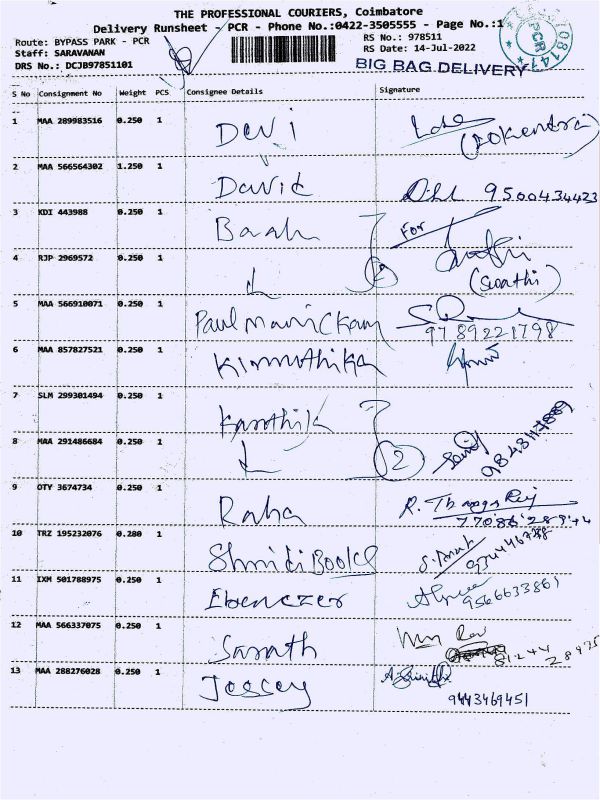 THE PROFESSIONAL COURIERS, Coimbatore
Delivery Runsheet - PCR - Phone No.:0422-3505555 - Page No.:1
Route: BYPASS PARK - PCR
Staff: SARAVANAN
DRS No.: DCJB97851101
RS No.: 978511
RS Date: 14-Jul-2022
BIG BAG DELIVERY
PCR
S No Consignment No Weight PCS Consignee Details Signature
1 MAA 289983516 0.250 1 Devi
2 MAA 566564302 1.250 1 David 9500434423
3 KDI 443988 0.250 1 For
4 RJP 2969572 0.250 1 2 (Swathi)
5 MAA 566910071 0.250 1 Paul Manickam 9789221798
6 MAA 857827521 0.250 1
7 SLM 299301494 0.250 1 Karthik
8 MAA 291486684 0.250 1 2
9 OTY 3674734 0.250 1 Raha
10 TRZ 195232076 0.280 1
11 IXM 501788975 0.250 1 Ebenezer 9566633861
12 MAA 566337075 0.250 1 Sarath
13 MAA 288276028 0.250 1 9443469451